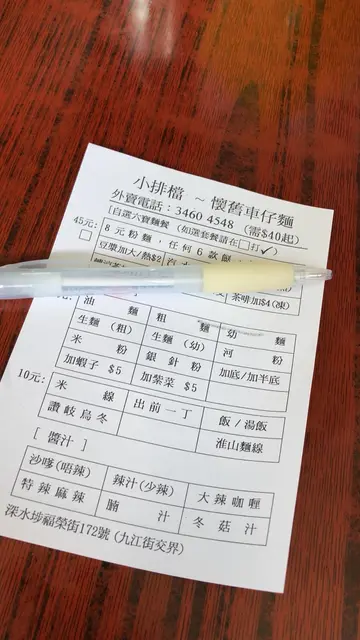 小排檔 ~ 懷舊車仔麵
外賣電話：3460 4548 (需$40起)
[自選六寶麵餐 (如選套餐請在□打✓)
45元: 8元粉麵，任何6款餸
□ 豆漿加大/熱$2 汽水
茶啡加$4(凍)
油麵 粗麵 幼麵
生麵 (粗) 生麵 (幼) 河粉
米粉 銀針粉 加底/加半底
加蝦子 $5 加紫菜 $5
10元: 米線 出前一丁 飯 / 湯飯
讚岐烏冬 淮山麵線
[ 醬汁 ]
沙嗲(唔辣) 辣汁(少辣) 大辣咖喱
特辣麻辣 腩汁 冬菇汁
深水埗福榮街172號 (九江街交界)